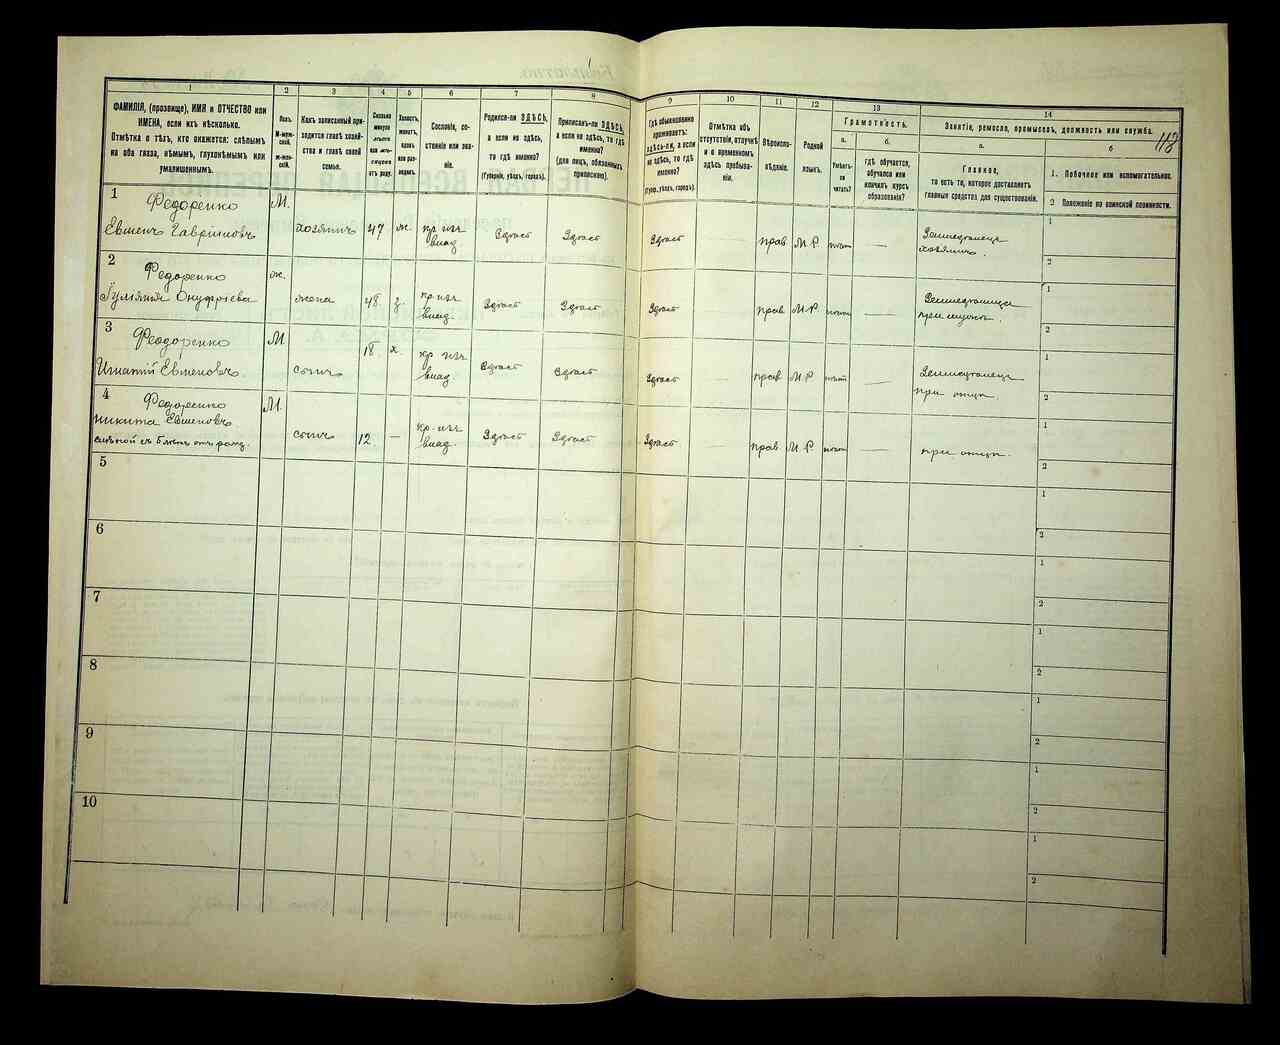 118
1
2
3
4
5
6
7
8
9
10
11
12
13
14
ФАМИЛІЯ, (прозвище), ИМЯ и ОТЧЕСТВО или
ИМЕНА, если ихъ нѣсколько.
Отмѣтка о тѣхъ, кто окажется: слѣпымъ
на оба глаза, нѣмымъ, глухонѣмымъ или
умалишеннымъ.
Полъ.
М-муж-
ской.
Ж-жен-
скій.
Какъ записанный при-
ходится главѣ хозяй-
ства и главѣ своей
семьи.
Сколько
минуло
лѣтъ
или мѣ-
сяцевъ
отъ роду.
Холостъ,
женатъ,
вдовъ
или раз-
веденъ.
Сословіе, со-
стояніе или зва-
ніе.
Родился-ли ЗДѢСЬ,
а если не здѣсь,
то гдѣ именно?
(Губернія, уѣздъ, городъ).
Приписанъ-ли ЗДѢСЬ,
а если не здѣсь, то гдѣ
именно?
(для лицъ, обязанныхъ
припискою).
Гдѣ обыкновенно
проживаетъ:
здѣсь-ли, а если
не здѣсь, то гдѣ
именно?
(Губер., уѣздъ, городъ).
Отмѣтка объ
отсутствіи, отлучкѣ
и о временномъ
здѣсь пребыва-
ніи.
Вѣроиспо-
вѣданіе.
Родной
языкъ.
Грамотность.
а.
б.
Умѣетъ-
ли
читать?
гдѣ обучается,
обучался или
кончилъ курсъ
образованія?
Занятіе, ремесло, промыселъ, должность или служба.
а.
б
Главное,
то есть то, которое доставляетъ
главныя средства для существованія.
1. Побочное или вспомогательное.
2 Положеніе по воинской повинности.
1
Федоренко
Евменъ Гавриловъ
М.
хозяинъ
47
ж.
Здѣсь
Здѣсь
Здѣсь
прав
М.Р.
Земледѣлецъ
хозяинъ.
1
2
2
Федоренко
Онуфріева
ж.
жена
48
з
Здѣсь
Здѣсь
Здѣсь
прав.
М.Р.
1
2
3
Федоренко
Игнатій Евменовъ
М
сынъ
18
х.
Здѣсь
Здѣсь
Здѣсь
прав
М.Р.
Земледѣлецъ
при отцѣ.
1
2
4
Федоренко
Никита Евменовъ
М.
сынъ
12.
—
Здѣсь
Здѣсь
Здѣсь
прав
М.Р
при отцѣ.
1
2
5
1
2
6
1
2
7
1
2
8
1
2
9
1
2
10
1
2